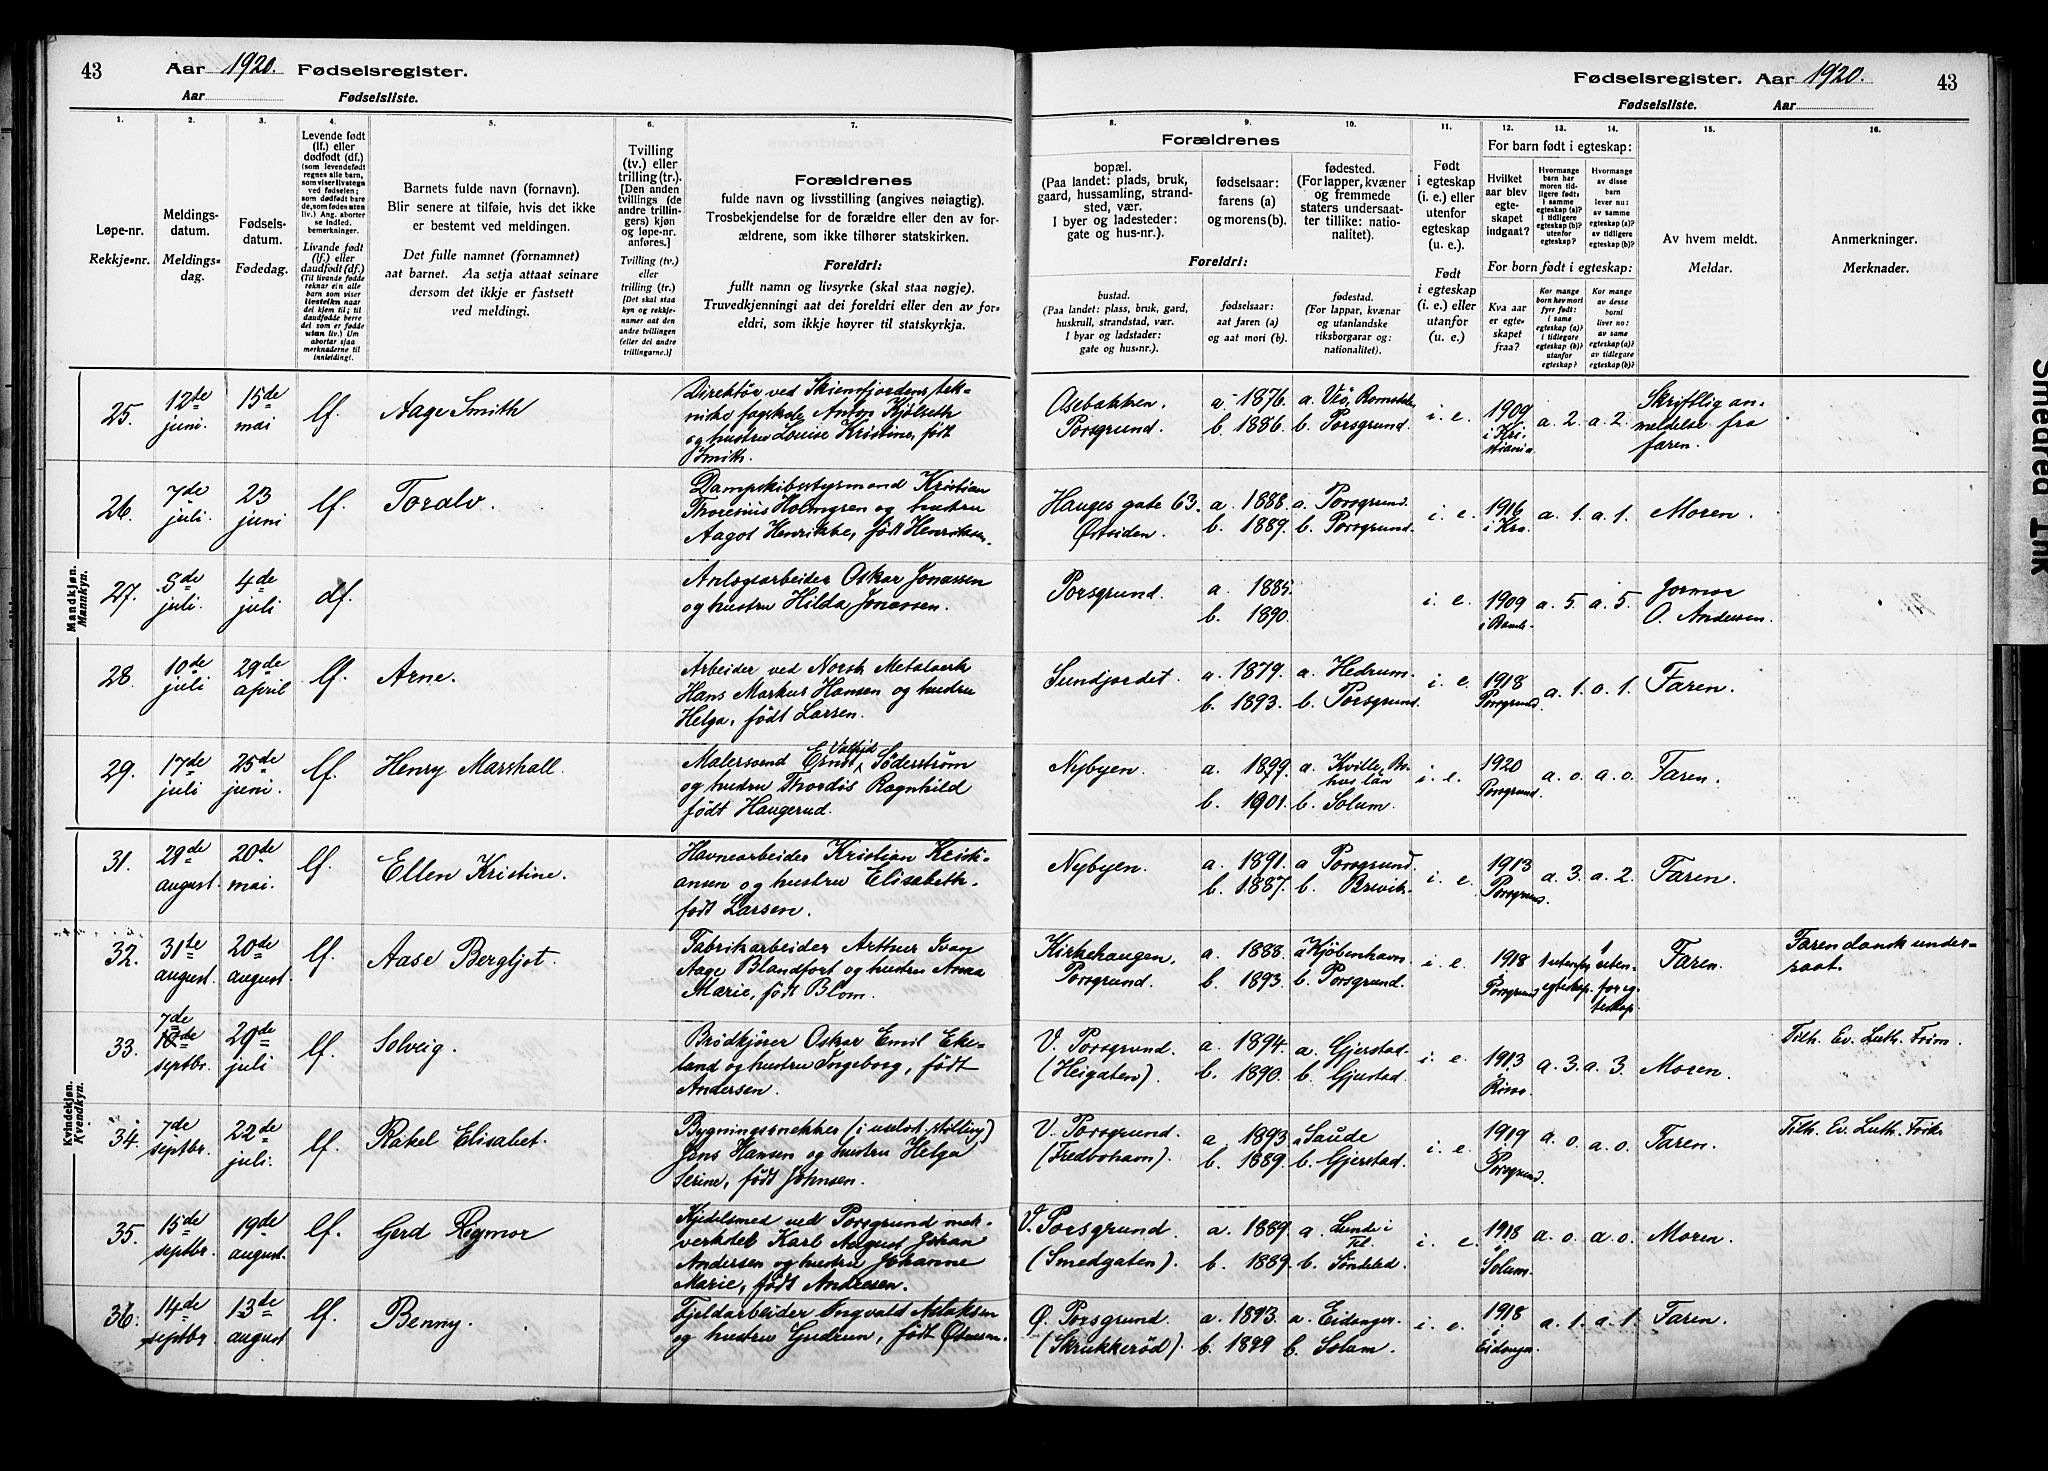 43 Aar 1920. Fødselsregister.
Aar Fødselsliste.
1.
Løpe-nr.
Rekkje=nr.
2.
Meldings-
datum.
Meldings=
dag.
3.
Fødsels-
datum.
Fødedag.
4.
Levende født
(lf.) eller
dødfødt (df.)
(som levendefødt
regnes alle barn,
som viser livstegn
ved fødselen;
som dødfødt bare
de, som fødes uten
liv.) Ang. aborter
se indled.
bemerkninger.
Livande født
(lf.) eller
daudfødt (df.)
(Til livande fødde
reknar ein alle
born som viser
livsteikn naar
dei kjem til; til
daudfødde berre
dei som er fødde
utan liv.) Um
abortar sjaa
merknaderne til
innleiding!.
5.
Barnets fulde navn (fornavn).
Blir senere at tilføie, hvis det ikke
er bestemt ved meldingen.
Det fulle namnet (fornamnet)
aat barnet. Aa setja attaat seinare
dersom det ikkje er fastsett
ved meldingi.
6.
Tvilling
(tv.) eller
trilling (tr.).
[Den anden
tvillings (de
andre trillin-
gers) kjøn
og løpe-nr.
anføres.]
Tvilling (tv.)
eller
trilling (tr.)
[Det skal staa
kyn og rekkje=
numer aat den
andre tvillingen
(eller dei andre
trillingarne.)]
7.
Forældrenes
fulde navn og livsstilling (angives nøiagtig).
Trosbekjendelse for de forældre eller den av for-
ældrene, som ikke tilhører statskirken.
Foreldri:
fullt namn og livsyrke (skal staa nøgje).
Truvedkjenningi aat dei foreldri eller den av for=
eldri, som ikkje høyrer til statskyrkja.
Mandkjøn.
Mannkyn.
25. 12te juni. 15de mai lf. Aage Smith
Direktør ved Skiensfjordens tek-
niske fagskole Anton Kjølseth
og hustru Louise Kristine, født
Smith.
26. 7de juli. 23 juni lf. Toralv.
Dampskibsstyrmand Kristian
Thorenius Holmgren og hustru
Aagot Henrikke, født Henriksen.
27. 8de juli. 4de juli df.
Anlægsarbeider Oskar Jonassen
og hustru Hilda Jonassen.
28. 10de juli 29de april lf. Arne.
Arbeider ved Norsk Metalverk
Hans Markus Hansen og hustru
Helga, født Larsen.
29. 17de juli 25de juni. lf. Henry Marshall.
Malersvend Ernst Valfrid Söderstrøm
og hustru Thordis Ragnhild
født Haugerud.
Kvindekjøn.
Kvendkyn.
31. 29de august. 20de mai. lf. Ellen Kristine.
Havnearbeider Kristian Kristi-
ansen og hustru Elisabeth,
født Larsen.
32. 31te august. 20de august lf. Aase Bergljot.
Fabrikarbeider Arthur Ivan
Aage Blandfort og hustru Anna
Marie, født Blom.
33. 7de septbr. 29de juli lf. Solveig.
Brødkjører Oskar Emil Eke-
land og hustru Ingeborg, født
Andersen.
34. 7de septbr. 22de juli. lf. Rakel Elisabet.
Bygningssnekker (i uselvst. stilling)
Jens Hansen og hustru Helga
Serine, født Johnsen.
35. 15de septbr. 19de august. lf. Gerd Rigmor
Kjedelsmed ved Porsgrund mek.
verksted Karl August Johan
Andersen og hustru Johanne
Marie, født Andresen.
36. 14de septbr. 13de august lf. Benny.
Fjeldarbeider Ingvald
og hustru Gudrun, født
Fødselsregister. Aar 1920. 43
Fødselsliste. Aar
8.
Forældrenes
bopæl.
(Paa landet: plads, bruk,
gaard, hussamling, strand-
sted, vær.
I byer og ladesteder:
gate og hus-nr.).
Foreldri:
bustad.
(Paa landet: plass, bruk, gard,
huskrull, strandstad, vær.
I byar og ladstader:
gate og hus=nr.).
9.
fødselsaar:
farens (a)
og morens (b).
fødselsaar:
aat faren (a)
og aat mori (b).
10.
fødested.
(For lapper, kvæner
og fremmede
staters undersaat-
ter tillike: natio-
nalitet).
fødestad.
(For lappar, kvænar
og utanlandske
riksborgarar og=
nationalitet).
11.
Født
i egteskap
(i. e.) eller
utenfor
egteskap
(u. e.).
Født
i egteskap
(i. e.) eller
utanfor
(u. e.).
For barn født i egteskap:
12.
Hvilket
aar blev
egte-
skapet
indgaat?
13.
Hvormange
barn har
moren tid-
ligere født,
i samme
egteskap (a)?
i tidligere
egteskap (b)?
utenfor
egteskap?
14.
Hvormange
av disse
barn
lever nu:
av samme
egteskap (a)?
av tidligere
egteskap (b)?
For born født i egteskap:
Kva aar
er egte=
skapet
fraa?
Kor mange
born hev mori
fyrr født:
i same
egteskap (a)?
i tidlegare
egteskap (b)?
utanfor
egteskap?
Kor mange
av desse
borni
liver no:
av same
egteskap (a)?
av tidlegare
egteskap (b)?
15.
Av hvem meldt.
Meldar.
16.
Anmerkninger.
Merknader.
Osebakken.
Porsgrund.
a. 1876. a. Vrö, Romsdalen
b. 1886. b. Porsgrund.
i. e. 1909 i Kristiania a. 2. a. 2.
Skriftlig an-
meldelse fra
faren.
Hauges gate 63.
Østsiden.
a. 1888. a. Porsgrund.
b. 1889. b. Porsgrund.
i. e. 1916 i Kra. a. 1. a. 1. Moren.
Porsgrund.
a. 1885.
b. 1890.
i. e. 1909 i Bamle. a. 5. a. 5. Jormor
O. Andersen.
Sundjordet.
a. 1879. a. Hedrum.
b. 1893. b. Porsgrund.
i. e. 1918 Porsgrund. a. 1. a. 1. Faren.
Nybyen.
a. 1899. a. Kville, Bo-
hus län
b. 1901. b. Solum.
i. e. 1920 Porsgrund. a. 0. a. 0. Faren.
Nybyen
a. 1891. a Porsgrund.
b. 1887. b. Brevik.
i. e. 1913 Porsgrund. a. 3. a. 2. Faren.
Kirkehaugen,
Porsgrund.
a. 1888. a Kjøbenhavn.
b. 1893. b. Porsgrund.
i. e. 1918 i Porsgrund 1 utenfor egteskap. 1 uten-
for eg-
teskap.
Faren.
Faren dansk under-
saat.
V. Porsgrund.
(Heigaten).
a. 1894. a. Gjerstad.
b. 1890. b. Gjerstad.
i. e. 1913 i Risør a. 3. a. 3. Moren.
Tilh. Ev. Luth. Frim.
V. Porsgrund.
(Fredbohavn).
a. 1893. a Saude
b. 1889. b. Gjerstad.
i. e. 1919 i Porsgrund. a. 0. a. 0. Faren.
Tilh. Ev. Luth. Frik.
V. Porsgrund.
(Smedgaten).
a. 1889. a. Lunde i
Tel.
b. 1889. b. Søndeled.
i. e. 1918 i Solum. a. 0. a. 0. Moren.
Ø. Porsgrund.
(Skrukkerød).
a. 1893. a. Eidanger.
b. 1899 b. Solum.
i. e. 1918 i Eidanger. a. 1. a. 1. Faren.
Smedreg 1 nk